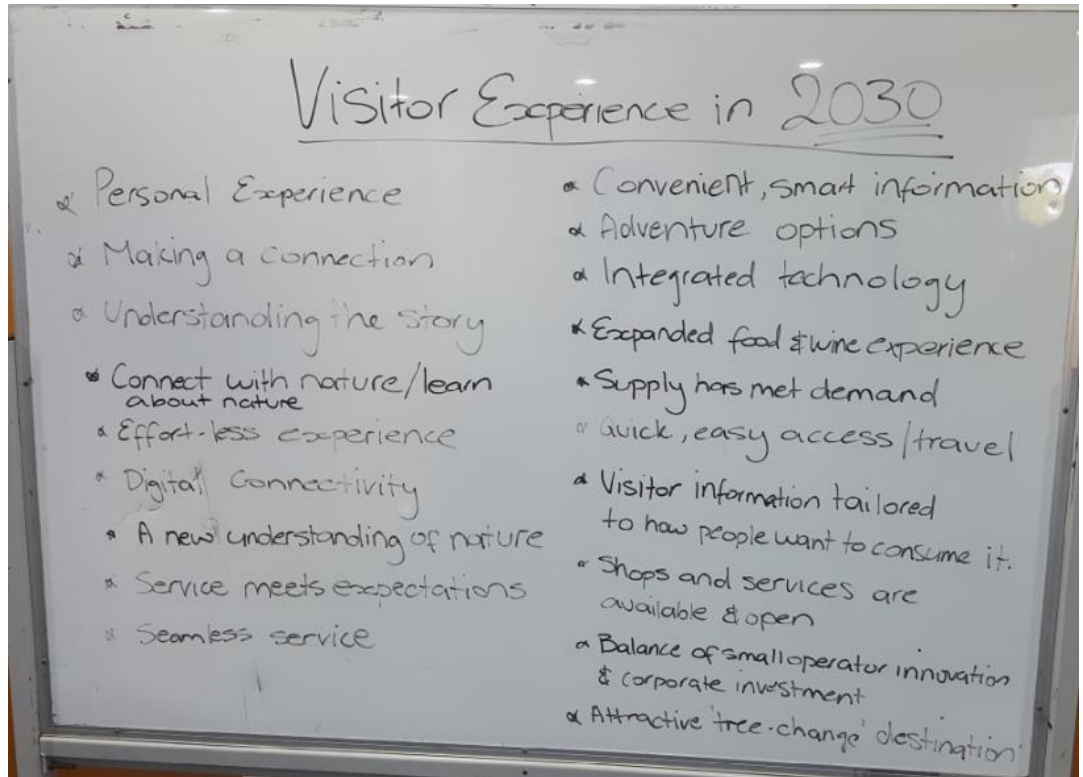 Visitor Experience in 2030
* Personal Experience
* Making a connection
* Understanding the story
* Connect with nature/learn
about nature
* Effort-less experience
* Digital Connectivity
* A new understanding of nature
* Service meets expectations
* Seamless service
* Convenient, smart information
* Adventure options
* Integrated technology
* Expanded food & wine experience
* Supply has met demand
* Quick, easy access/travel
* Visitor information tailored
to how people want to consume it.
* Shops and services are
available & open
* Balance of small operator innovation
& corporate investment
* Attractive 'tree-change' destination